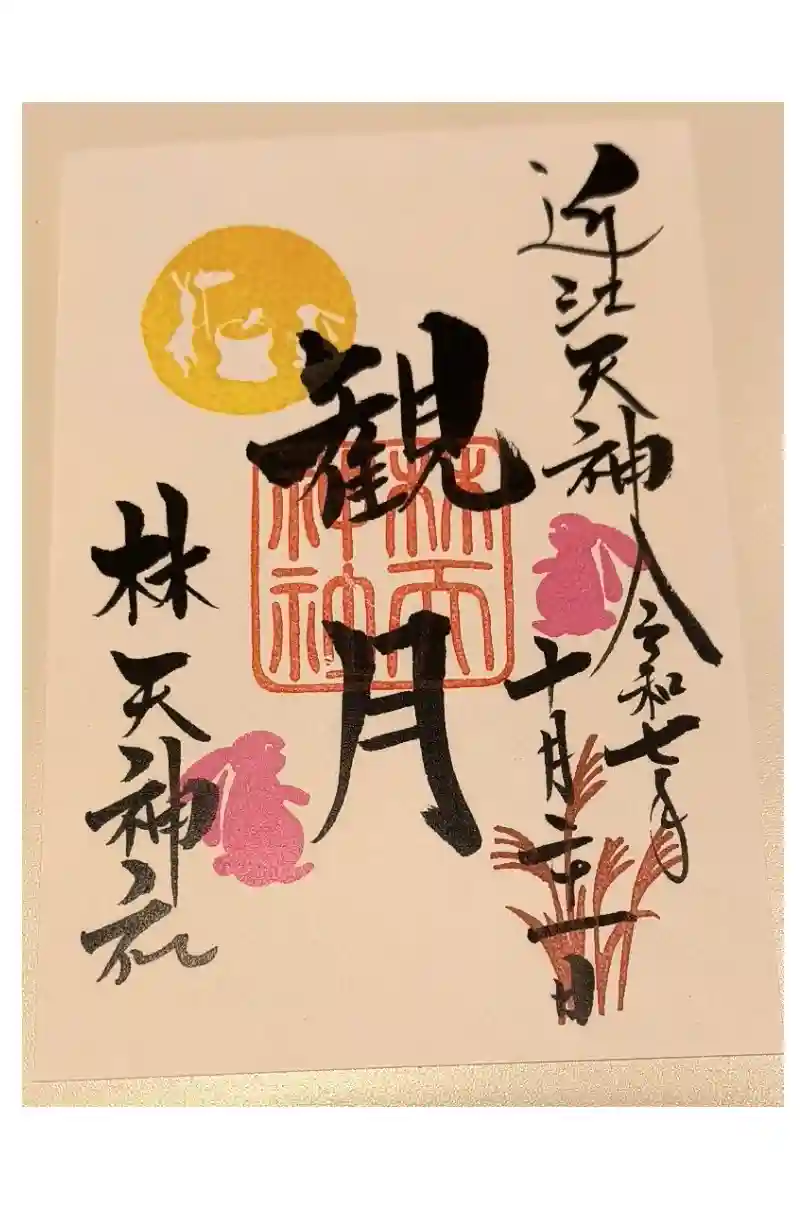 近江天神
令和七年
十月二十一日
観月
林天
神社
林天神社